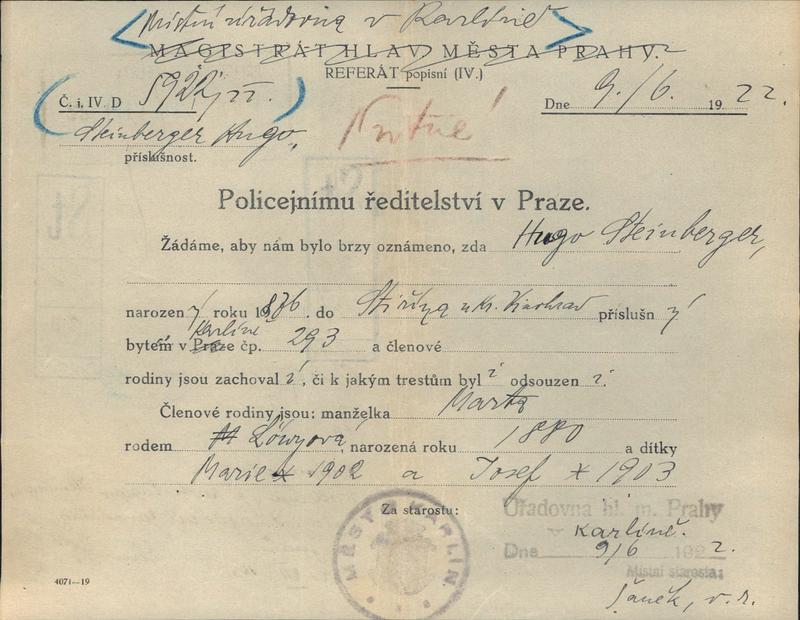 Místní úřadovna v Karlíně
MAGISTRÁT HLAV. MĚSTA PRAHY.
REFERÁT popisní (IV.)
Č. i. IV. D 5922/22.
Dne 9./6. 1922.
Steinberger Hugo,
Nutné!
příslušnost.
Policejnímu ředitelství v Praze.
Žádáme, aby nám bylo brzy oznámeno, zda Hugo Steinberger,
narozený roku 1876. do Štiřína příslušný
bytem v Praze Karlíně čp. 293 a členové
rodiny jsou zachovalí, či k jakým trestům byli odsouzeni.
Členové rodiny jsou: manželka Marta
rodem Löwyová, narozená roku 1880 a dítky
Marie * 1902 a Josef * 1903
Za starostu:
MĚSTO KARLÍN.
Úřadovna hl. m. Prahy
v Karlíně.
Dne 9/6 1922.
Místní starosta:
Vaněk, v. r.
4071—19